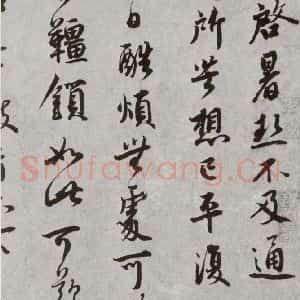 啓暑熱不及通
所苦想已平復
日酷煩無處可
韁鎖如此可歎
Shufawang.CN